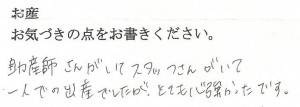 お産
お気づきの点をお書きください。
助産師さんがいてスタッフさんがいて
一人での出産でしたが、とても心強かったです。